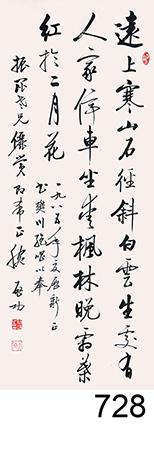 遠上寒山石徑斜白雲生處有
人家停車坐愛楓林晚霜葉
紅於二月花
一九八五年夏
書樊川絕唱以奉
老兄儷賞即希正腕
啟功
728